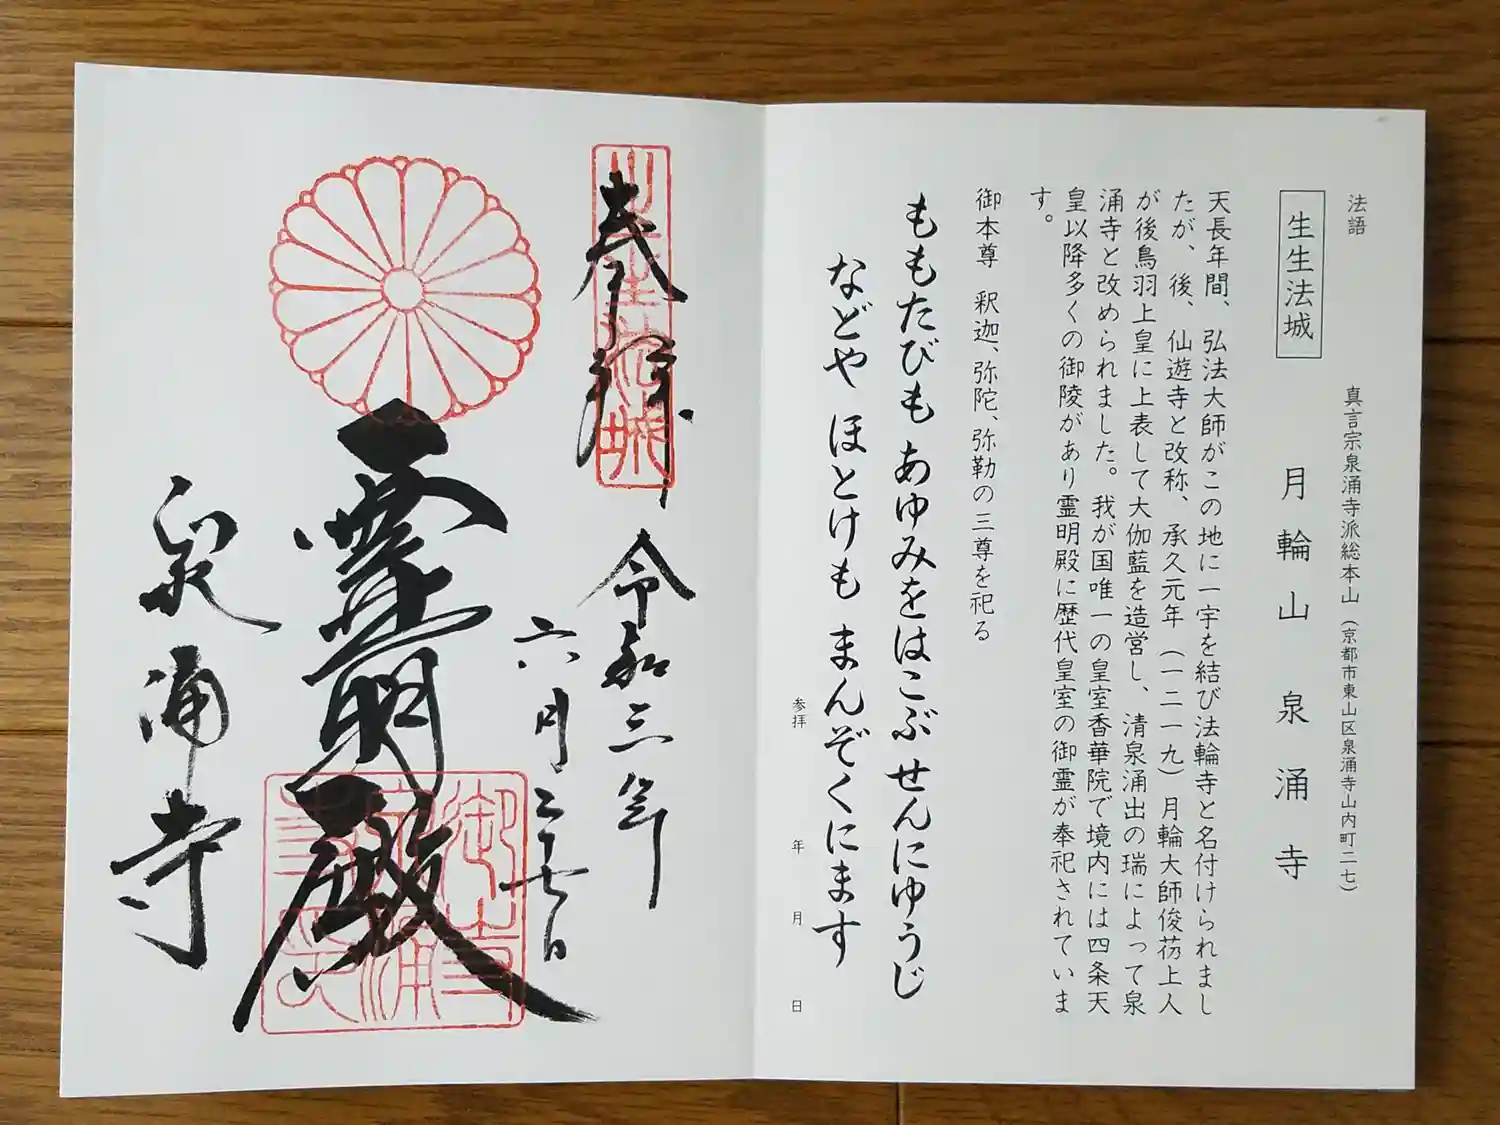 法語
生生法城
真言宗泉涌寺派総本山（京都市東山区泉涌寺山内町二七）
月輪山 泉涌寺
天長年間、弘法大師がこの地に一宇を結び法輪寺と名付けられまし
たが、後、仙遊寺と改称、承久元年（一二一九）月輪大師俊芿上人
が後鳥羽上皇に上表して大伽藍を造営し、清泉涌出の瑞によって泉
涌寺と改められました。我が国唯一の皇室香華院で境内には四条天
皇以降多くの御陵があり霊明殿に歴代皇室の御霊が奉祀されていま
す。
御本尊 釈迦、弥陀、弥勒の三尊を祀る
ももたびも あゆみをはこぶ せんにゆうじ
などや ほとけも まんぞくにまます
参拝 年 月 日
奉拝
生生法城
令和三年
六月二十七日
霊明殿
泉涌寺